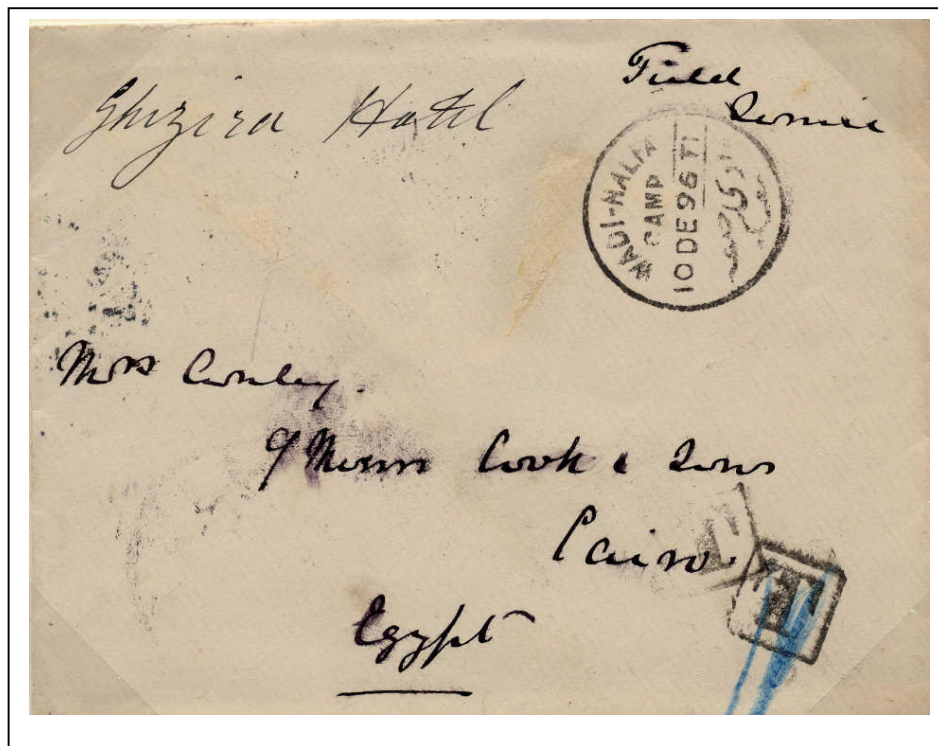 Ghizira Hotel
Field
Service
WADI-HALFA
CAMP
10 DE 96 T1
Mrs
c/o Messrs Cook & Sons
Cairo.
Egypt
T
T